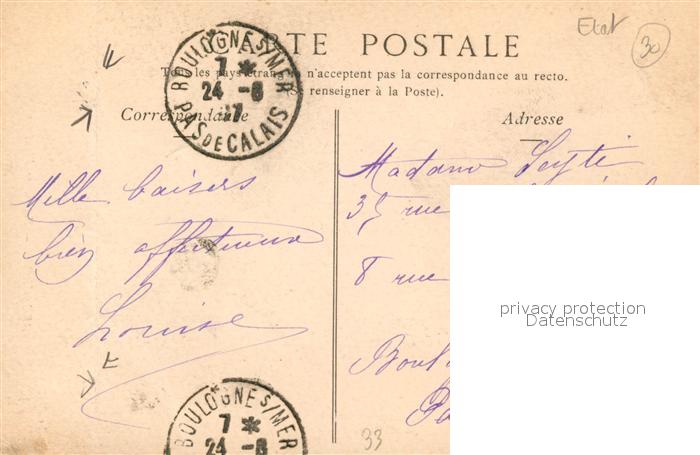 CARTE POSTALE
Etat
30
Tous les pays étrangers n'acceptent pas la correspondance au recto.
(Se renseigner à la Poste).
BOULOGNE S/MER
7 *
24 -8
17
PAS DE CALAIS
Correspondance
Adresse
Mille baisers
bien affectueux
Louise
Madame
35 rue
8 rue
privacy protection
Datenschutz
BOULOGNE S/MER
7 *
24 -8
33